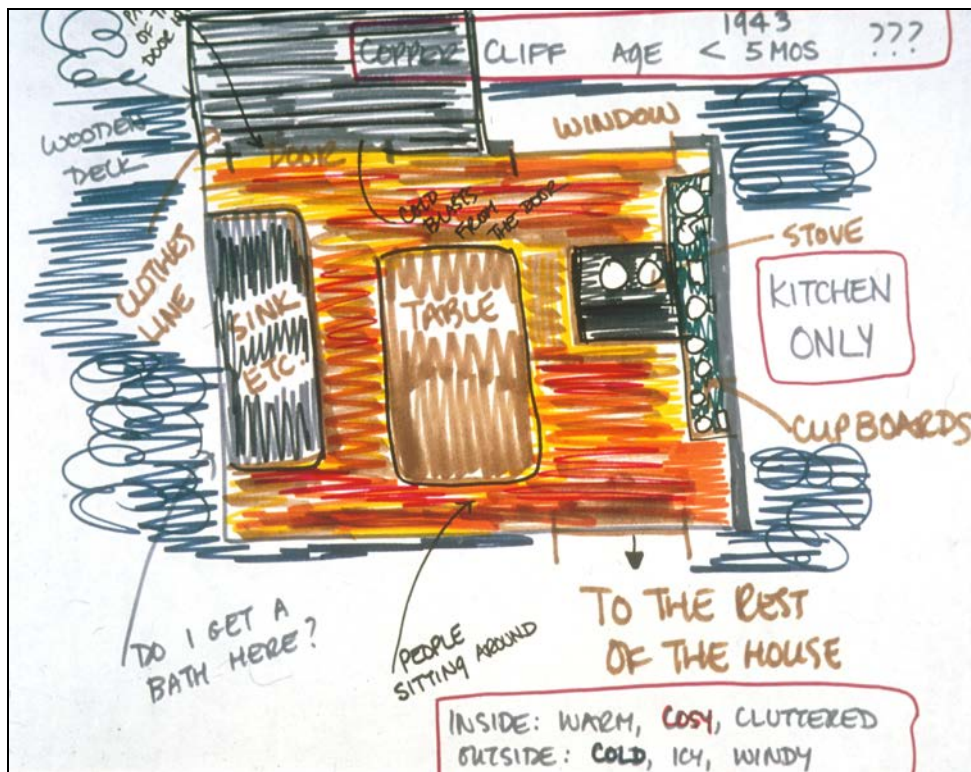 1943
COPPER CLIFF AGE < 5 MOS ???
OF
DOOR
WOODEN
DECK
DOOR
WINDOW
COLD
BLASTS
FROM
THE DOOR
CLOTHES
LINE
SINK
ETC.
TABLE
STOVE
KITCHEN
ONLY
CUPBOARDS
DO I GET A
BATH HERE?
PEOPLE
SITTING AROUND
TO THE REST
OF THE HOUSE
INSIDE: WARM, COSY, CLUTTERED
OUTSIDE: COLD, ICY, WINDY